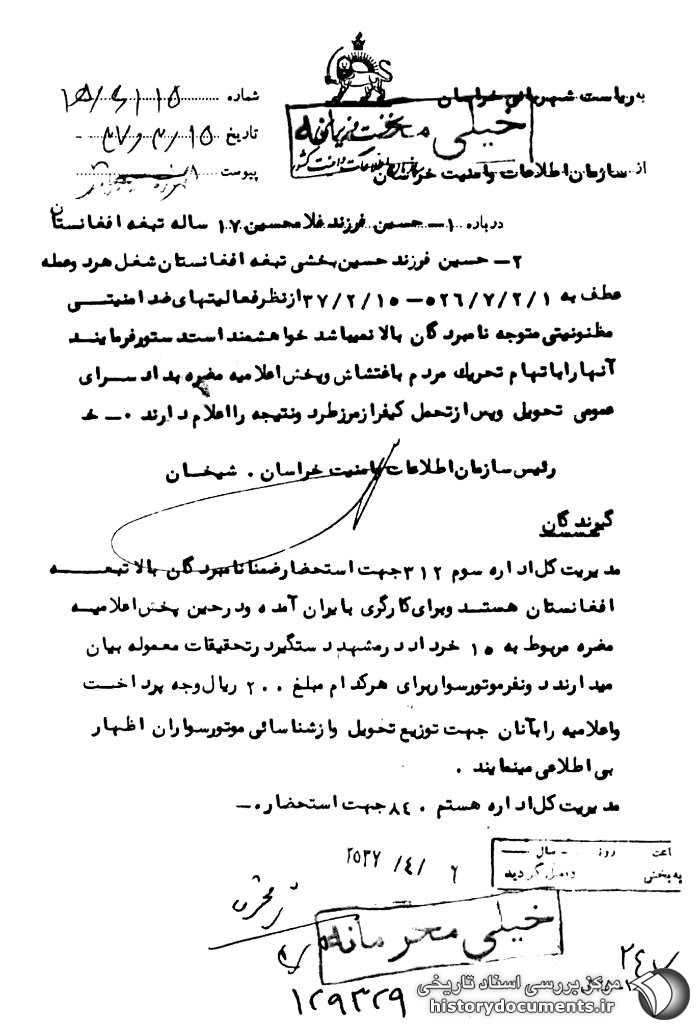 به ریاست شهربانی خراسان
شماره ۱۵/۶۱۱۵
خیلی محرمانه
نخست وزیری
سازمان اطلاعات و امنیت کشور
تاریخ ۳۷/۳/۱۵
از سازمان اطلاعات و امنیت خراسان
پیوست
درباره ۱- حسین فرزند غلامحسین ۱۷ ساله تبعه افغانستان
۲- حسین فرزند حسین بخشی تبعه افغانستان شغل هر دو عمله
عطف به ۵۲۶/۷/۲/۱-۳۷/۲/۱۵ از نظر فعالیتهای ضد امنیتی
مظنونیتی متوجه نامبردگان بالا نمیباشد خواهشمند است دستور فرمایند
آنها را باتهام تحریک مردم باغتشاش و پخش اعلامیه مضره بدادسرای
عمومی تحویل و پس از تحمل کیفر از مرز طرد و نتیجه را اعلام دارند ۰- خ
رئیس سازمان اطلاعات و امنیت خراسان . شیخان
گیرندگان
مدیریت کل اداره سوم ۳۱۲ جهت استحضار ضمنا نامبردگان بالا تبعه
افغانستان هستند و برای کارگری بایران آمده و در حین پخش اعلامیه
مضره مربوط به ۱۵ خرداد در مشهد دستگیر در تحقیقات معموله بیان
میدارند دو نفر موتورسوار برای هر کدام مبلغ ۲۰۰ ریال وجه پرداخت
و اعلامیه را بآنان جهت توزیع تحویل و از شناسائی موتورسواران اظهار
بی اطلاعی مینمایند .
مدیریت کل اداره هستم ۸۴۰ جهت استحضار ۰-
ساعت روز سال
به بخش واصل گردید
۲۵۳۷/۴/۶
خیلی محرمانه
۲۴۷
۱۲۹۳۲۹
مرکز بررسی اسناد تاریخی
historydocuments.ir